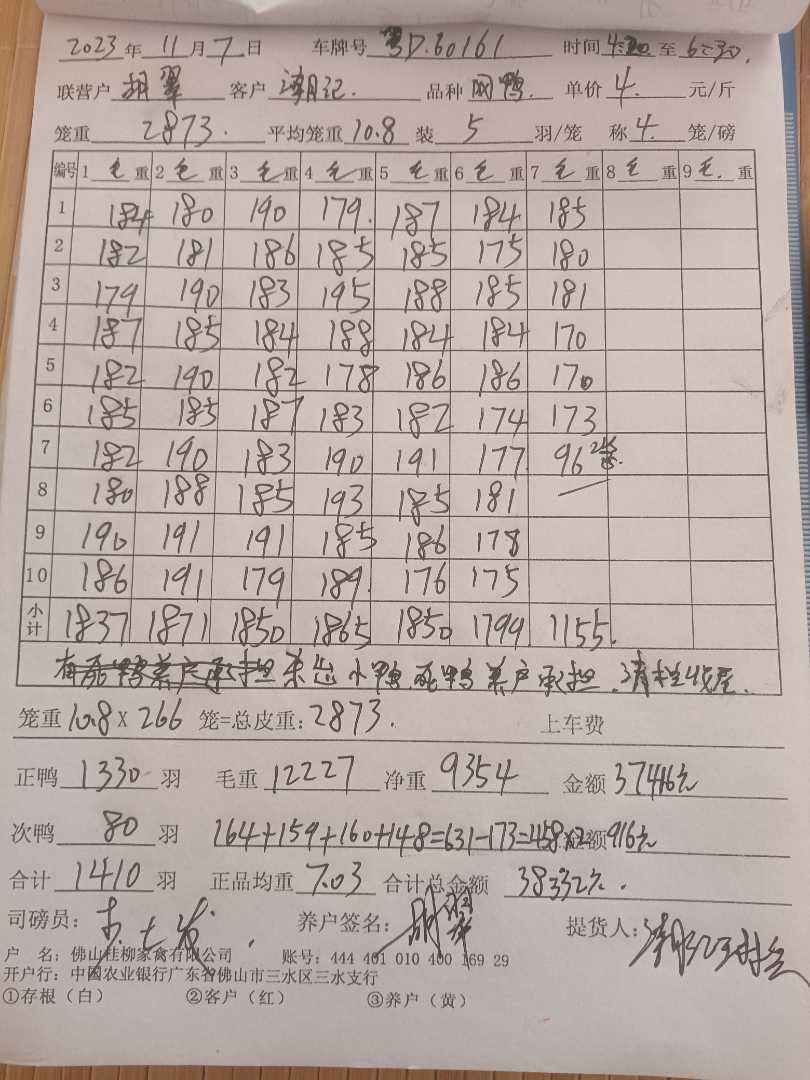 2023年11月7日 车牌号 粤D.60161 时间4:30至6:30.
联营户 胡翠 客户 潮记. 品种 网鸭. 单价 4. 元/斤
笼重 2873. 平均笼重 10.8 装 5 羽/笼 称 4. 笼/磅
编号 1 毛 重 2 毛 重 3 毛 重 4 毛 重 5 毛 重 6 毛 重 7 毛 重 8 毛 重 9 毛. 重
1 184 180 190 179. 187 184 185
2 182 181 186 185 185 175 180
3 179 190 183 195 188 185 181
4 187 185 184 188 184 184 170
5 182 190 182 178 186 186 170
6 185 185 187 183 182 174 173
7 182 190 183 190 191 177 96
8 180 188 185 193 185 181
9 190 191 191 185 186 178
10 186 191 179 189. 176 175
小计 1837 1871 1850 1865 1850 1799 1155.
有死鸭养户承担 小鸭.死鸭养户承担.
笼重 10.8 X 266 笼=总皮重: 2873. 上车费
正鸭 1330 羽 毛重 12227 净重 9354 金额 37416元
次鸭 80 羽 164+159+160+148=631-173=458×2 金额 916元
合计 1410 羽 正品均重 7.03 合计总金额 38332元.
司磅员: 养户签名: 提货人:
户 名: 佛山桂柳家禽有限公司 账号: 444 401 010 400 169 29
开户行: 中国农业银行广东省佛山市三水区三水支行
①存根（白） ②客户（红） ③养户（黄）